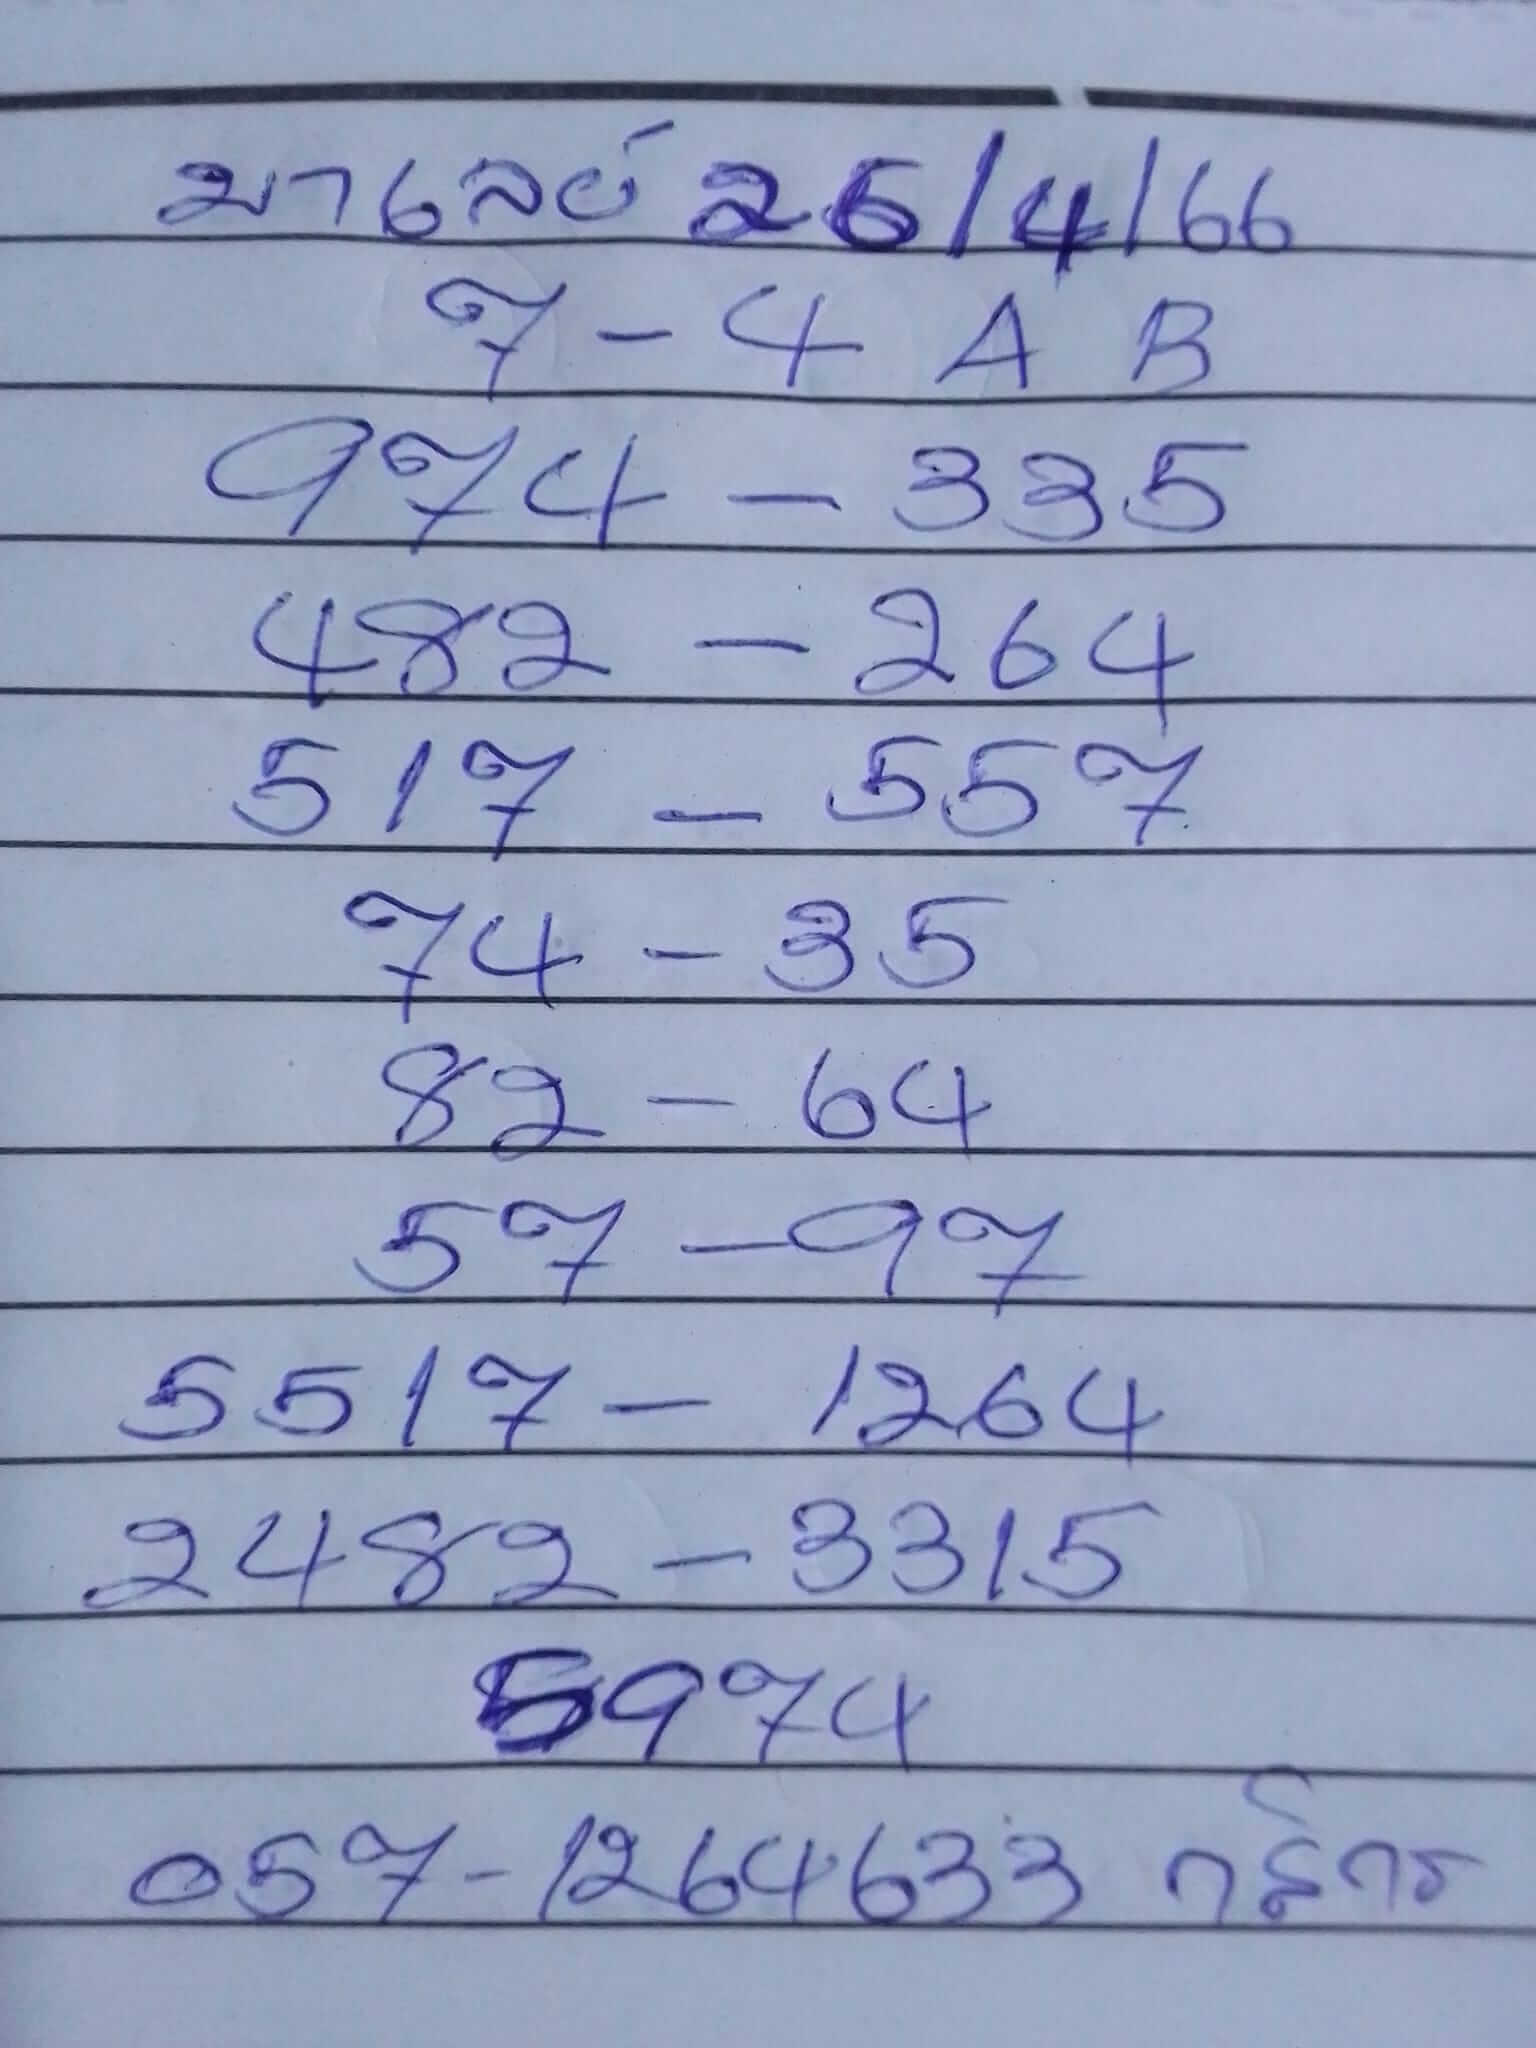 มาเลย์ 26/4/66
7-4 A B
974-335
482-264
517-557
74-35
82-64
57-97
5517-1264
2482-3315
5974
057-1264633